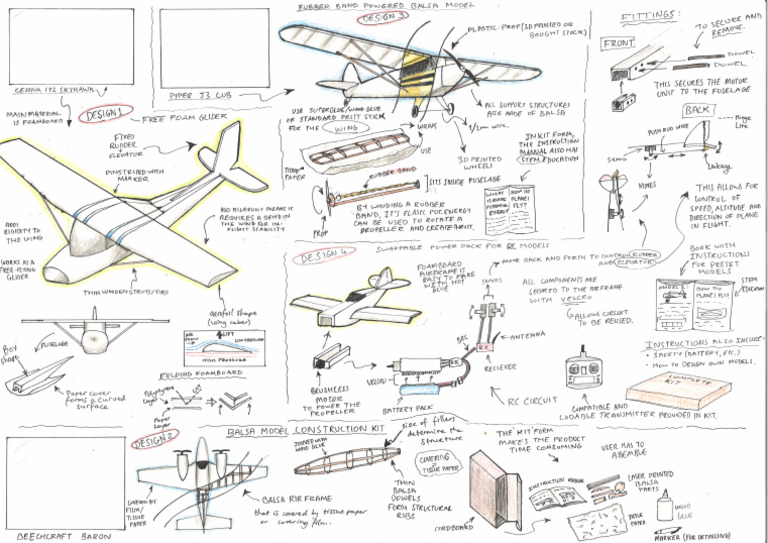 RUBBER BAND POWERED BALSA MODEL
DESIGN 3
PLASTIC PROP (3D PRINTED OR
BOUGHT STOCK)
CESSNA 172 SKYHAWK
PIPER J3 CUB
MAIN MATERIAL
IS FOAMBOARD
DESIGN 1
FREE FOAM GLIDER
FIXED
RUDDER
+
ELEVATOR
PINSTRIPED WITH
MARKER
ADD
RIGIDITY TO
THE WING
WORKS AS A
FREE-FLYING
GLIDER
THIN WOODEN STRUTS/TIES
REQUIRES A BEND IN
THE WING FOR IN-
FLIGHT STABILITY
Aerofoil shape
(wing cuber)
AIR
FLOW
LIFT
LOW PRESSURE
HIGH PRESSURE
FOLDING FOAMBOARD
Polystyrene
Layer
Paper
Layer
FUSELAGE
Box
shape
Paper cover
forms a curved
surface
USE SUPERGLUE/WOOD GLUE
OF STANDARD PRITT STICK
FOR THE WING
WRAP
USE
TISSUE
PAPER
RUBBER BAND
SITS INSIDE FUSELAGE
PROP
BY WINDING A RUBBER
BAND, ITS ELASTIC POT. ENERGY
CAN BE USED TO ROTATE A
PROPELLER AND CREATE THRUST.
ALL SUPPORT STRUCTURES
ARE MADE OF BALSA
1/2mm wire
3D PRINTED
WHEELS
IN KIT FORM,
THE INSTRUCTION
MANUAL ALSO HAS
STEM EDUCATION
WHAT
ELASTIC
POTENTIAL
ENERGY?
HOW DO
PLANES
FLY?
FITTINGS:
FRONT
TO SECURE AND
REMOVE.
DOWEL
DOWEL
THIS SECURES THE MOTOR
UNIT TO THE FUSELAGE
BACK
PUSH ROD WIRE
Hinge
Line
Servo
Linkage
MOVES
THIS ALLOWS FOR
CONTROL OF
SPEED, ALTITUDE AND
DIRECTION OF PLANE
IN FLIGHT.
BOOK WITH
INSTRUCTIONS
FOR PRESET
MODELS
MODEL 1:
HOW DO
PLANES FLY?
STEM
EDUCATION
INSTRUCTIONS ALSO INCLUDE:
• SAFETY (BATTERY, ETC.)
• HOW TO DESIGN OWN MODELS.
COMPLETE
KIT
DESIGN 4
SWAPPABLE POWER PACK FOR RC MODELS
FOAMBOARD
AIRFRAME IS
EASY TO MAKE
WITH HOT
GLUE
MOVE BACK AND FORTH TO CONTROL RUDDER
AND ELEVATOR
SERVOS
ALL COMPONENTS ARE
SECURED TO THE AIRFRAME
WITH VELCRO
ALLOWS CIRCUIT
TO BE REUSED.
BEC
RX
ANTENNA
RECIEVER
VELCRO
BRUSHLESS
MOTOR
TO POWER THE
PROPELLER
BATTERY PACK
RC CIRCUIT
COMPATIBLE AND
LOADABLE TRANSMITTER PROVIDED IN KIT.
DESIGN 2
BALSA MODEL CONSTRUCTION KIT
BEECHCRAFT BARON
COVERED BY
FILM/
TISSUE
PAPER
BALSA AIRFRAME
that is covered by tissue paper
or covering film.
JOINED WITH
WOOD GLUE
size of fillers
determine the
structure
COVERING
TISSUE PAPER
THIN
BALSA
DOWELS
FORM STRUCTURAL
RIBS
THE KIT FORM
MAKES THE PRODUCT
TIME CONSUMING
USER HAS TO
ASSEMBLE
CARDBOARD
INSTRUCTION MANUAL
LASER PRINTED
BALSA
PARTS
TISSUE
PAPER
WOOD
GLUE
MARKER (FOR DETAILING)